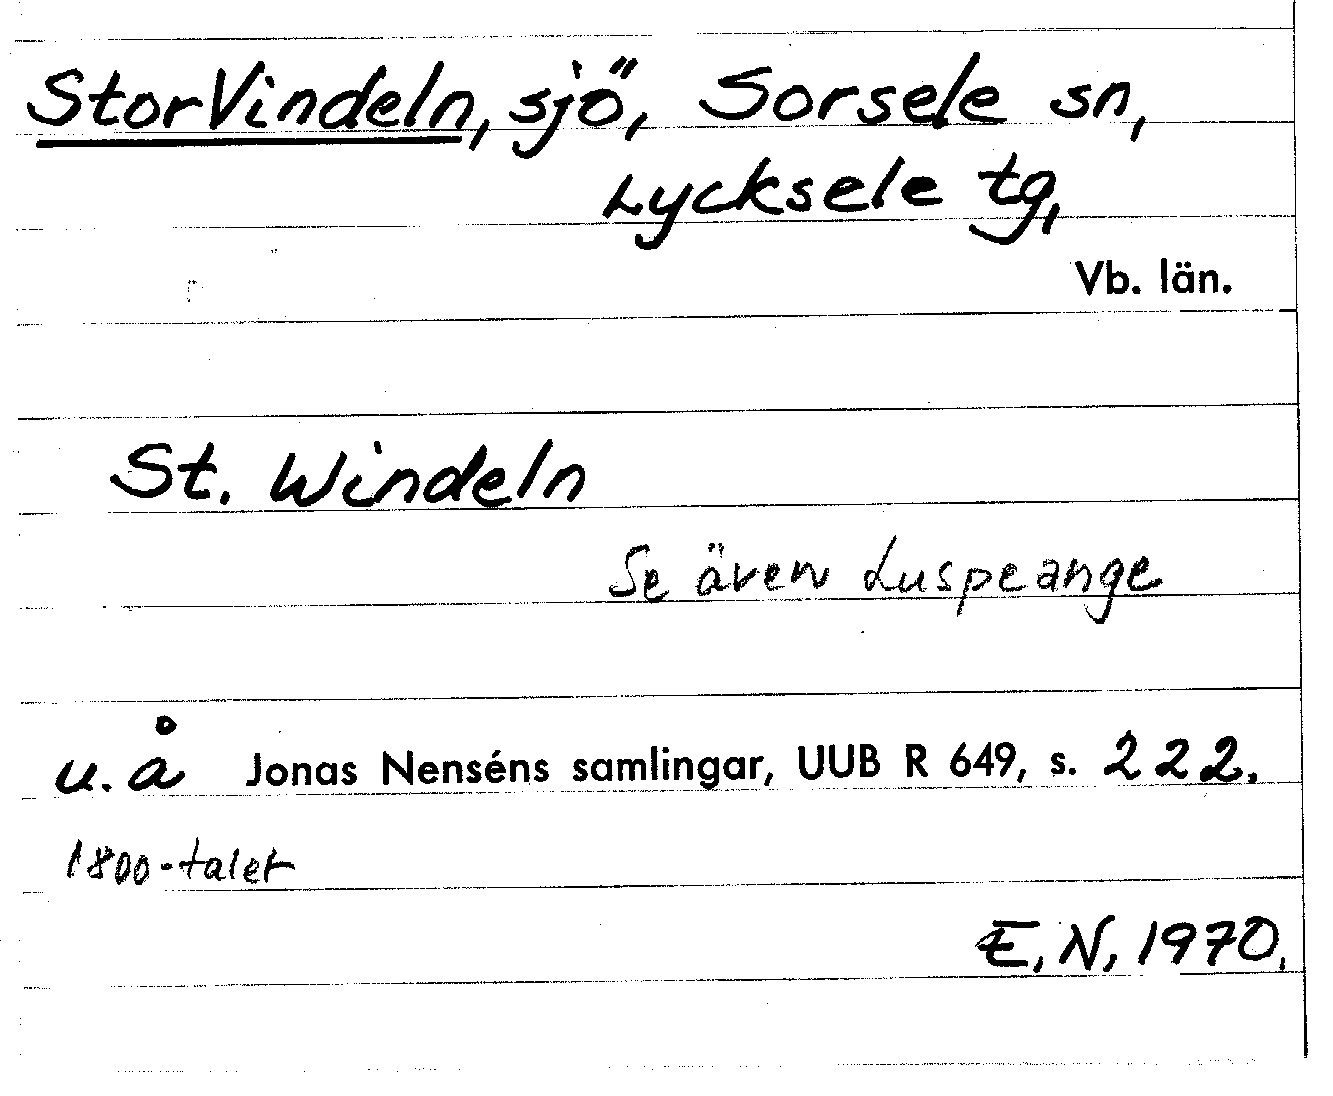 StorVindeln, sjö, Sorsele sn,
Lycksele tg,
Vb. län.
St. Windeln
Se även Luspeange
u. å Jonas Nenséns samlingar, UUB R 649, s. 222.
1800-talet
E, N, 1970.